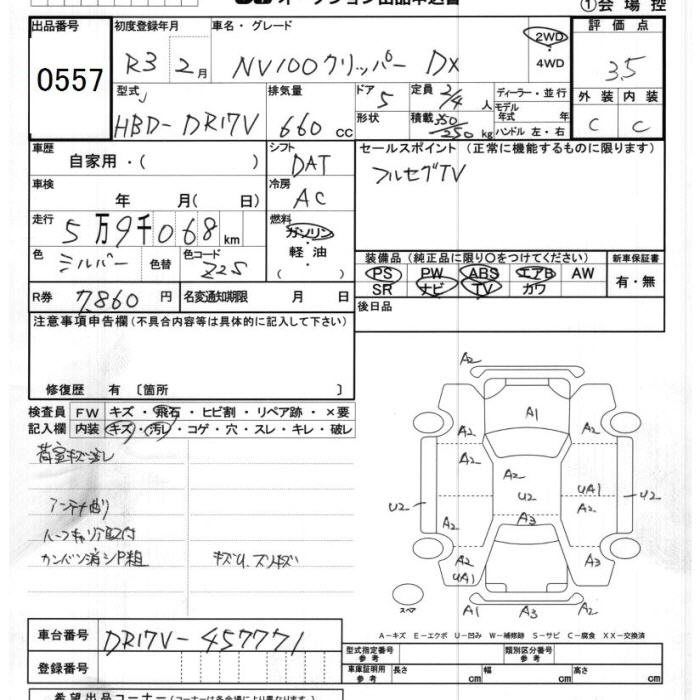 ①会場控
出品番号 0557
初度登録年月 R3 2月
車名・グレード NV100クリッパー DX
2WD
4WD
評価点 3.5
型式 HBD-DR17V
排気量 660cc
ドア 5
形状
定員 2/4人
積載 350/250kg
ディーラー・並行
モデル年式 年
ハンドル 左・右
外装 C
内装 C
車歴 自家用・( )
シフト DAT
セールスポイント(正常に機能するものに限ります)
フルセグTV
車検 年 月( 日)
冷房 AC
走行 5万9千068km
燃料 ガソリン
軽油
( )
色 シルバー 色替
色コード Z2S
装備品(純正品に限り○をつけてください)
新車保証書
PS PW ABS エアB AW
SR ナビ TV カワ
有・無
R券 7,860円
名変通知期限 月 日
後日品
注意事項申告欄(不具合内容等は具体的に記入して下さい)
修復歴 有〔箇所 〕
検査員 FW キズ・飛石・ヒビ割・リペア跡・×要
記入欄 内装 キズ・汚レ・コゲ・穴・スレ・キレ・破レ
荷室キズ汚レ
アンテナ曲り
カンバン消シP粗 キズU、スリキズ
A2
A1
A2 A2
A2
A2 A2
U2 U2 UA1 U2
A2 A3 A2
A2 A3
UA1
スペア
A1 A3 A2
A-キズ E-エクボ U-凹み W-補修跡 S-サビ C-腐食 XX-交換済
車台番号 DR17V-457771
登録番号
型式指定番号 参考
類別区分番号 参考
車庫証明用 参考 長さ cm 幅 cm 高さ cm
希望出品コーナー(コーナーは各会場により異なります)